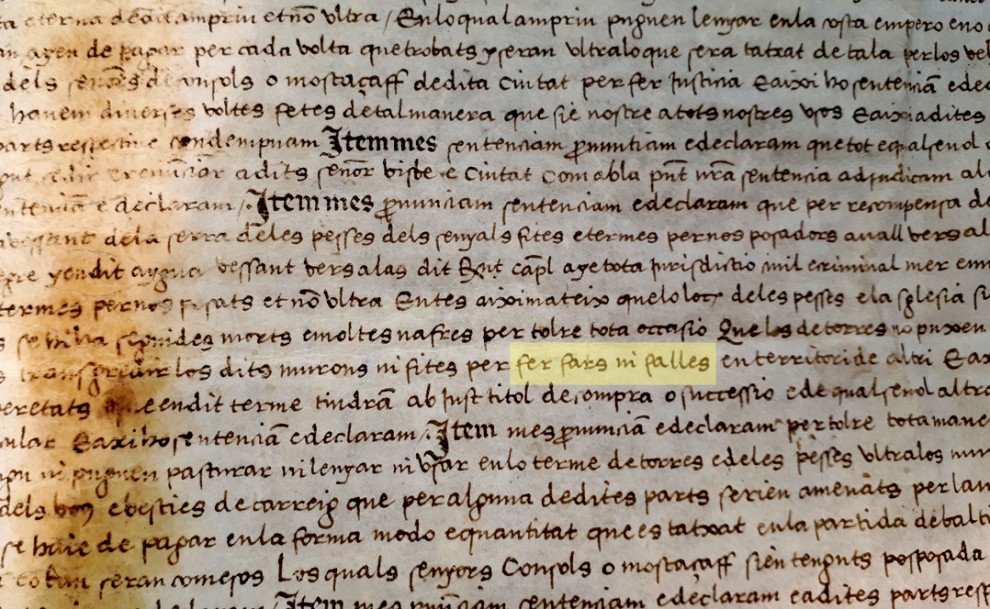 eterna deça lampriu et nō ultra / En lo qual ampriu puguen lenyar en la usta empero en o
de pagar per cada volta que trobats y seran ultra lo que sera tatxat de tala per los ve
dels senōrs de consols o mostaçaff de dita Ciutat per fer Justicia Eaixi ho sentenciā e dec
havem diverses voltes fetes de tal manera que sie nostre a tots nostres usos Eaixi a dites
parts respective condempnam Item mes sentenciam pronuntiam e declaram que tot e qualsevol
renunciar a dits señor bisbe e Ciutat Com ab la pnt nr̄a sentencia adjudicam a
e declaram / Item mes pronunciam sentenciam e declaram que per recompensa de
vessant de la serra deles pesses dels senyals fites e termes per nos posadors avall vers al
y en dit aygua vessant vers alas dit Rnt capl age tota Jurisdictio civil criminal mer em
termes per nos posats et nō ultra Entes aiximateix que lo loch deles pesses e la sglesia si
seguides morts e moltes nafres per tolre tota occasio Que los de torres no puxen
transgredir los dits murons ni fites per fer fars ni falles en territori de altri Eax
que en dit terme tindrā ab Just titol de compra o successio e de qualsevol altr
Eaxi ho sentenciā e declaram / Item mes pronunciā e declaram per tolre tota mane
ni puguen pasturar ni lenyar ni usar en lo terme de torres e deles pesses ultra los mur
dels bous e besties de carreig que per alguna de dites parts serien amenāts per lan
se haie de pagar en la forma modo e quantitat que es tatxat en la partida de balti
seran comesos Los quals senyors Consols o mostaçaff sien tenguts posposada
Item mes pnūciam sentenciam e declaram e a dites parts resp